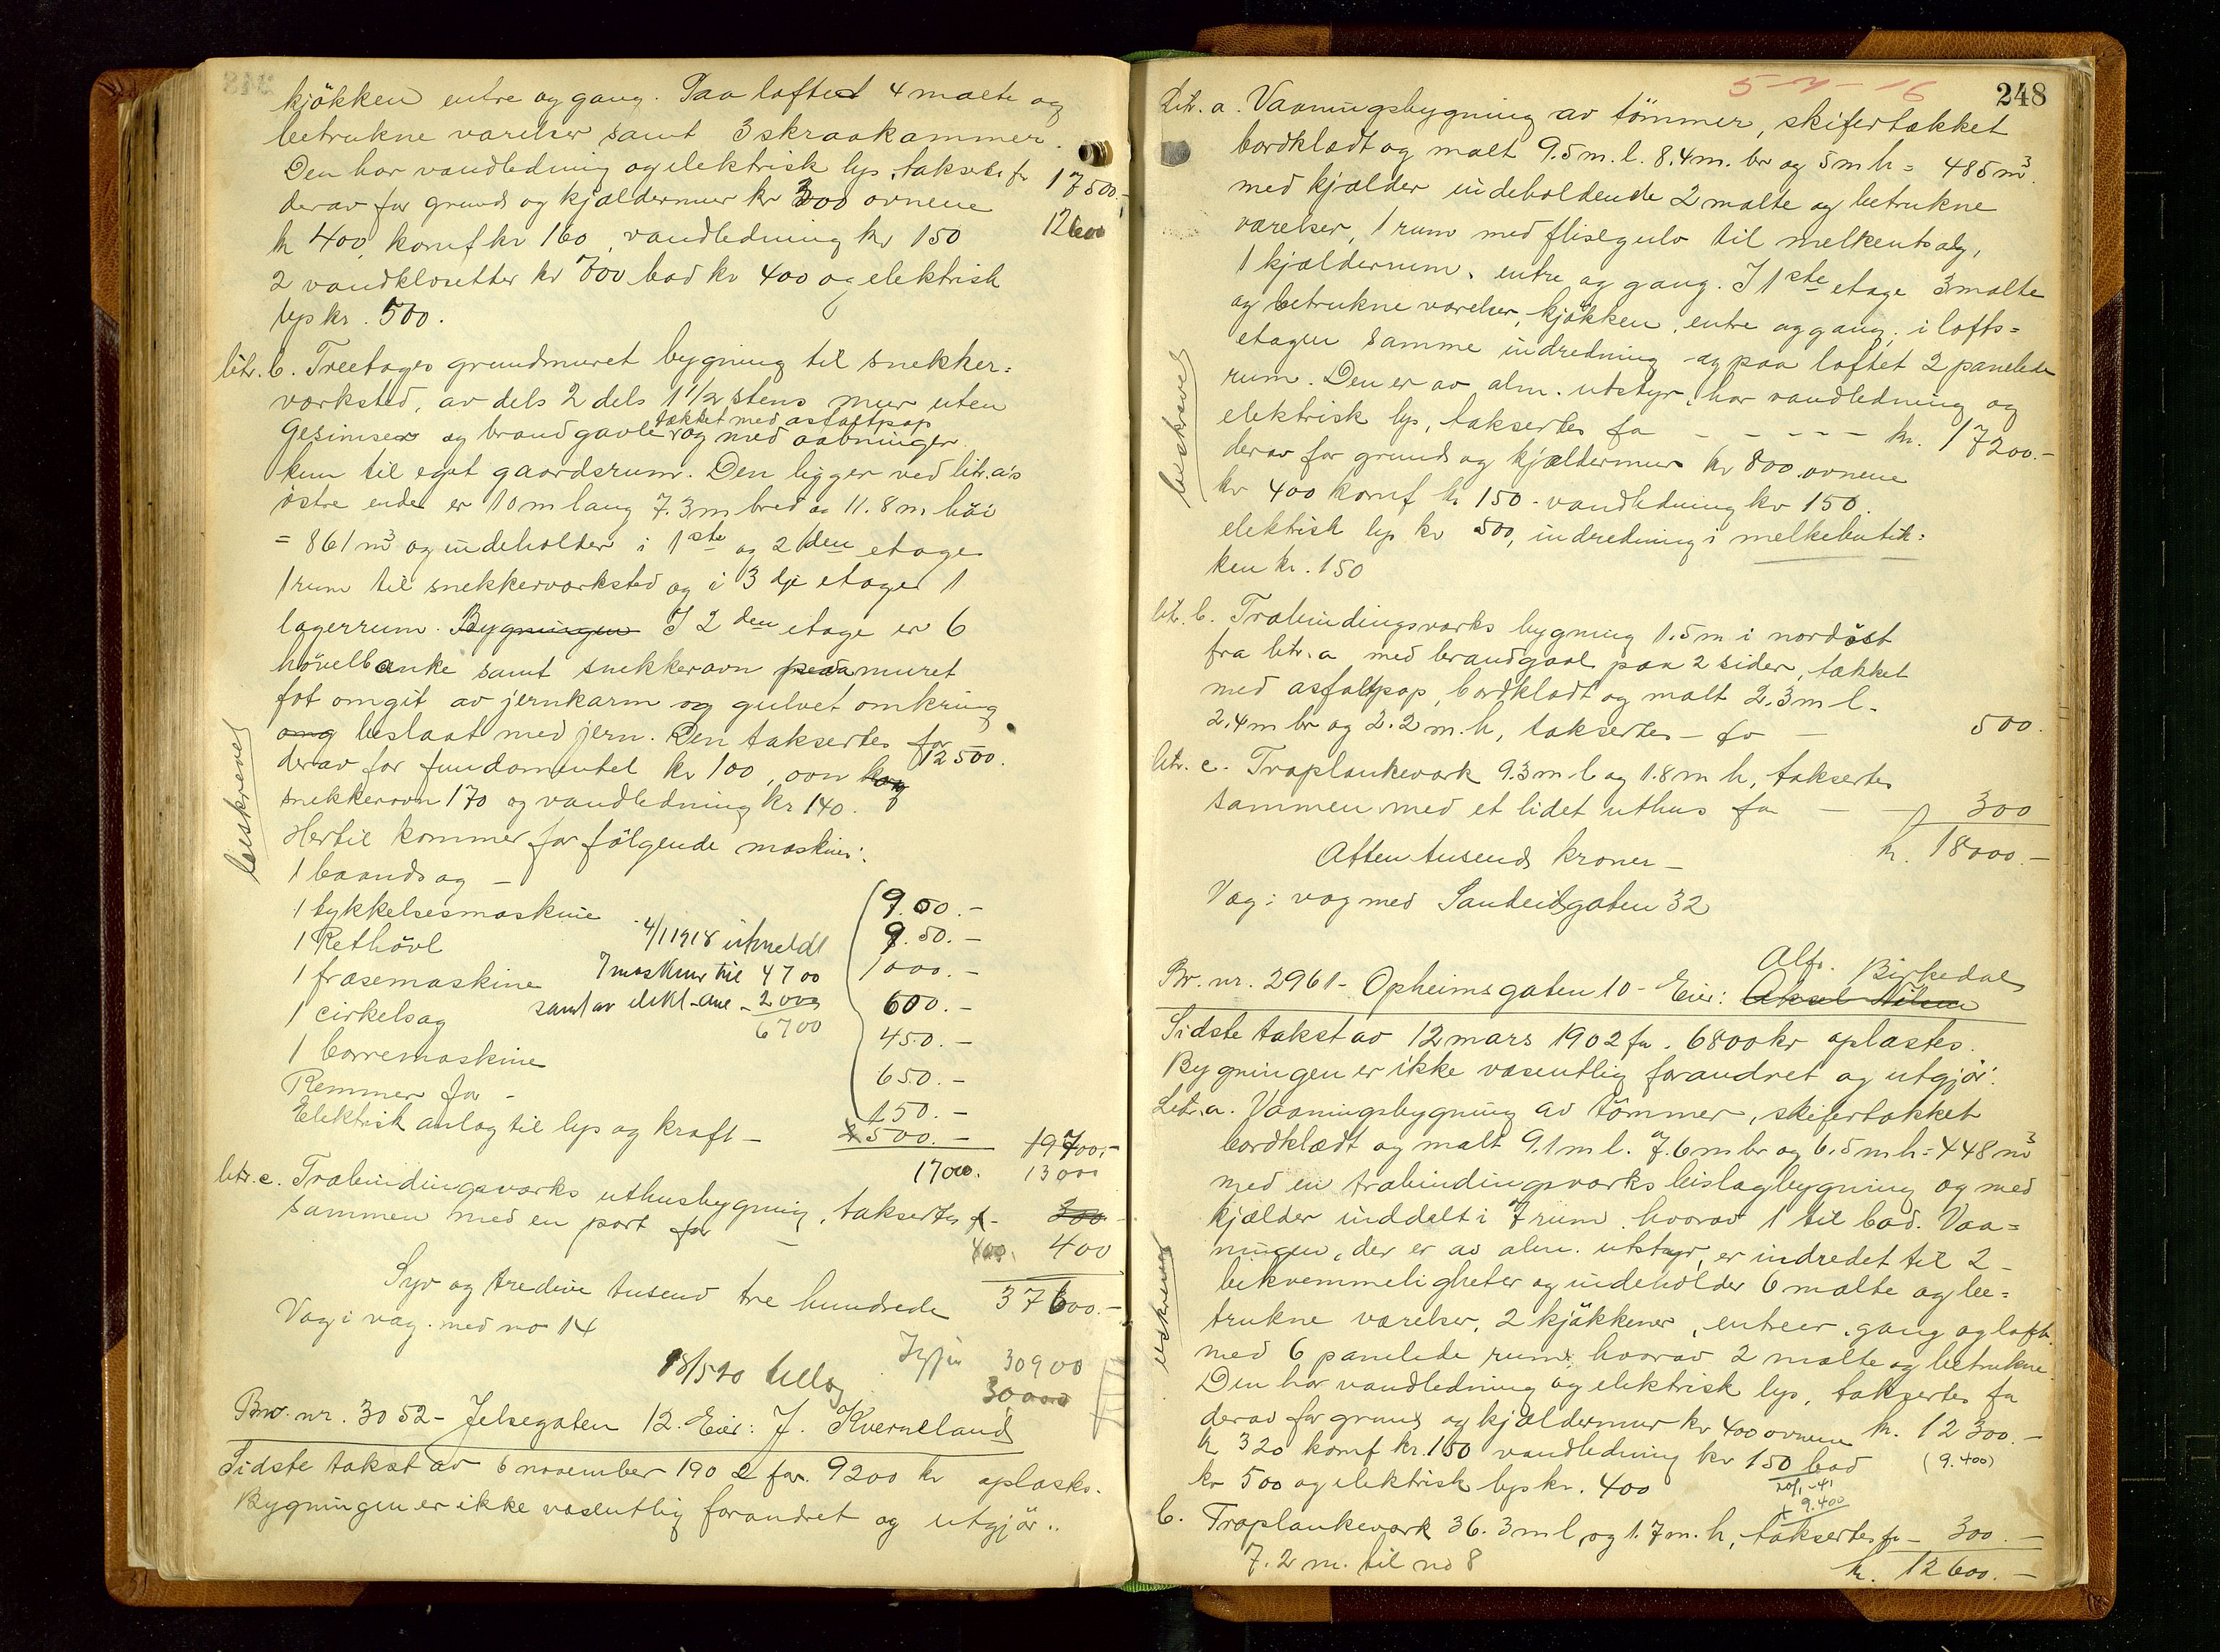 kjökken entre og gang. Paa loftet 4 malte og
betrukne værelser samt 3 skraakammer.
Den har vandledning og elektrisk lys, taksertes fr 17500.-
derav for grund og kjældermur kr 300 ovnene 12600
kr 400, komf kr 160, vandledning kr 150
2 vandklosetter kr 700 bad kr 400 og elektrisk
lys kr. 500.
litr. b. Treetages grundmuret bygning til snekker=
værksted, av dels 2 dels 1 1/2 stens mur uten
tækket med asfaltpap
Gesimser og brandgavle og med aabninger
kun til eget gaardsrum. Den ligger ved litr. a's
östre ende er 10 m lang 7.3 m bred og 11.8 m höi
= 861 m³ og indeholder i 1ste og 2den etage
1 rum til snekkerværksted og i 3dje etage 1
lagerrum. Bygningen I 2den etage er 6
hövelbænke samt snekkerovn paa muret
fot omgit av jernkarm og gulvet omkring
omg beslaat med jern. Den taksertes for 12500.
derav for fundamentet kr 100, ovn
snekkerovn 170 og vandledning kr 140.
beskrevet
Hertil kommer for fölgende maskiner:
1 baandsag -
1 tykkelsesmaskine 900.-
1 Rethövl 4/1 1918 utmeldt 950.-
1 fræsemaskine 7 maskiner til 4700 1000.-
1 cirkelsag samt av elekt. anl - 2000 600.-
6700
1 borremaskine 450.-
Remmer for - 650.-
150.-
Elektrisk anlæg til lys og kraft - 500.- 19700.-
1700. 13000
litr. c. Træbindingsværks uthusbygning, taksertes f- 200
sammen med en port for - 400. 400
Syv og tredive tusend tre hundrede 37600.-
Væg i væg med no 14
18/5 20 tillæg 30900
30,000
Br. nr. 3052 - Jelsegaten 12. Eier: J. Kverneland
Sidste takst av 6 november 1902 for 9200 kr oplæstes.
Bygningen er ikke væsentlig forandret og utgjör:
5-7-16
248
Litr. a. Vaaningsbygning av tömmer, skifertækket
bordklædt og malt 9.5 m. l. 8.4 m. br og 5 m h = 485 m³.
med kjælder indeholdende 2 malte og betrukne
værelser, 1 rum med flisegulv til melkeutsalg,
1 kjælderrum, entre og gang. I 1ste etage 3 malte
og betrukne værelser, kjökken, entre og gang, i lofts=
etagen samme indredning og paa loftet 2 panelede
rum. Den er av alm. utstyr, har vandledning og
elektrisk lys, taksertes for - - - - - kr. 17200.-
derav for grund og kjældermur kr 800 ovnene
kr 400 komf kr 150 - vandledning kr 150.
beskrevet
elektrisk lys kr 500, indredning i melkebutik=
ken kr. 150
litr. b. Træbindingsværks bygning 1.5 m i nordöst
fra litr. a med brandgavl paa 2 sider, tækket
med asfaltpap, bordklædt og malt 2.3 m l.
2.4 m br og 2.2 m. h, taksertes - for - 500.
litr. c. Træplankeværk 9.3 m l og 1.8 m h, taksertes
sammen med et lidet uthus for - - 300
Atten tusend kroner - kr. 18000.-
Væg i væg med Sandeidgaten 32
Alfr. Birkedal
Br. nr. 2961 - Opheimsgaten 10 - Eier: Aksel Nilsen
Sidste takst av 12 mars 1902 for 6800 kr oplæstes.
Bygningen er ikke væsentlig forandret og utgjör:
Litr. a. Vaaningsbygning av tömmer, skifertækket
bordklædt og malt 9.1 m l. 7.6 m br og 6.5 m h = 448 m³
med en træbindingsværks bislagbygning og med
kjælder inddelt i 7 rum hvorav 1 til bad. Vaa=
ningen, der er av alm. utstyr, er indredet til 2
bekvemmeligheter og indeholder 6 malte og be=
trukne værelser, 2 kjökkener, entreer, gang og loft
med 6 panelede rum, hvorav 2 malte og betrukne.
beskrevet
Den har vandledning og elektrisk lys, taksertes for
derav for grund og kjældermur kr 400 ovnene kr. 12300.-
kr 320 komf kr. 150 vandledning kr 150 bad (9.400)
kr 500 og elektrisk lys kr. 400 20/1-41
+ 9.400
b. Træplankeværk 36.3 m l og 1.7 m. h, taksertes fr - 300.-
7.2 m. til no 8 kr. 12600.-